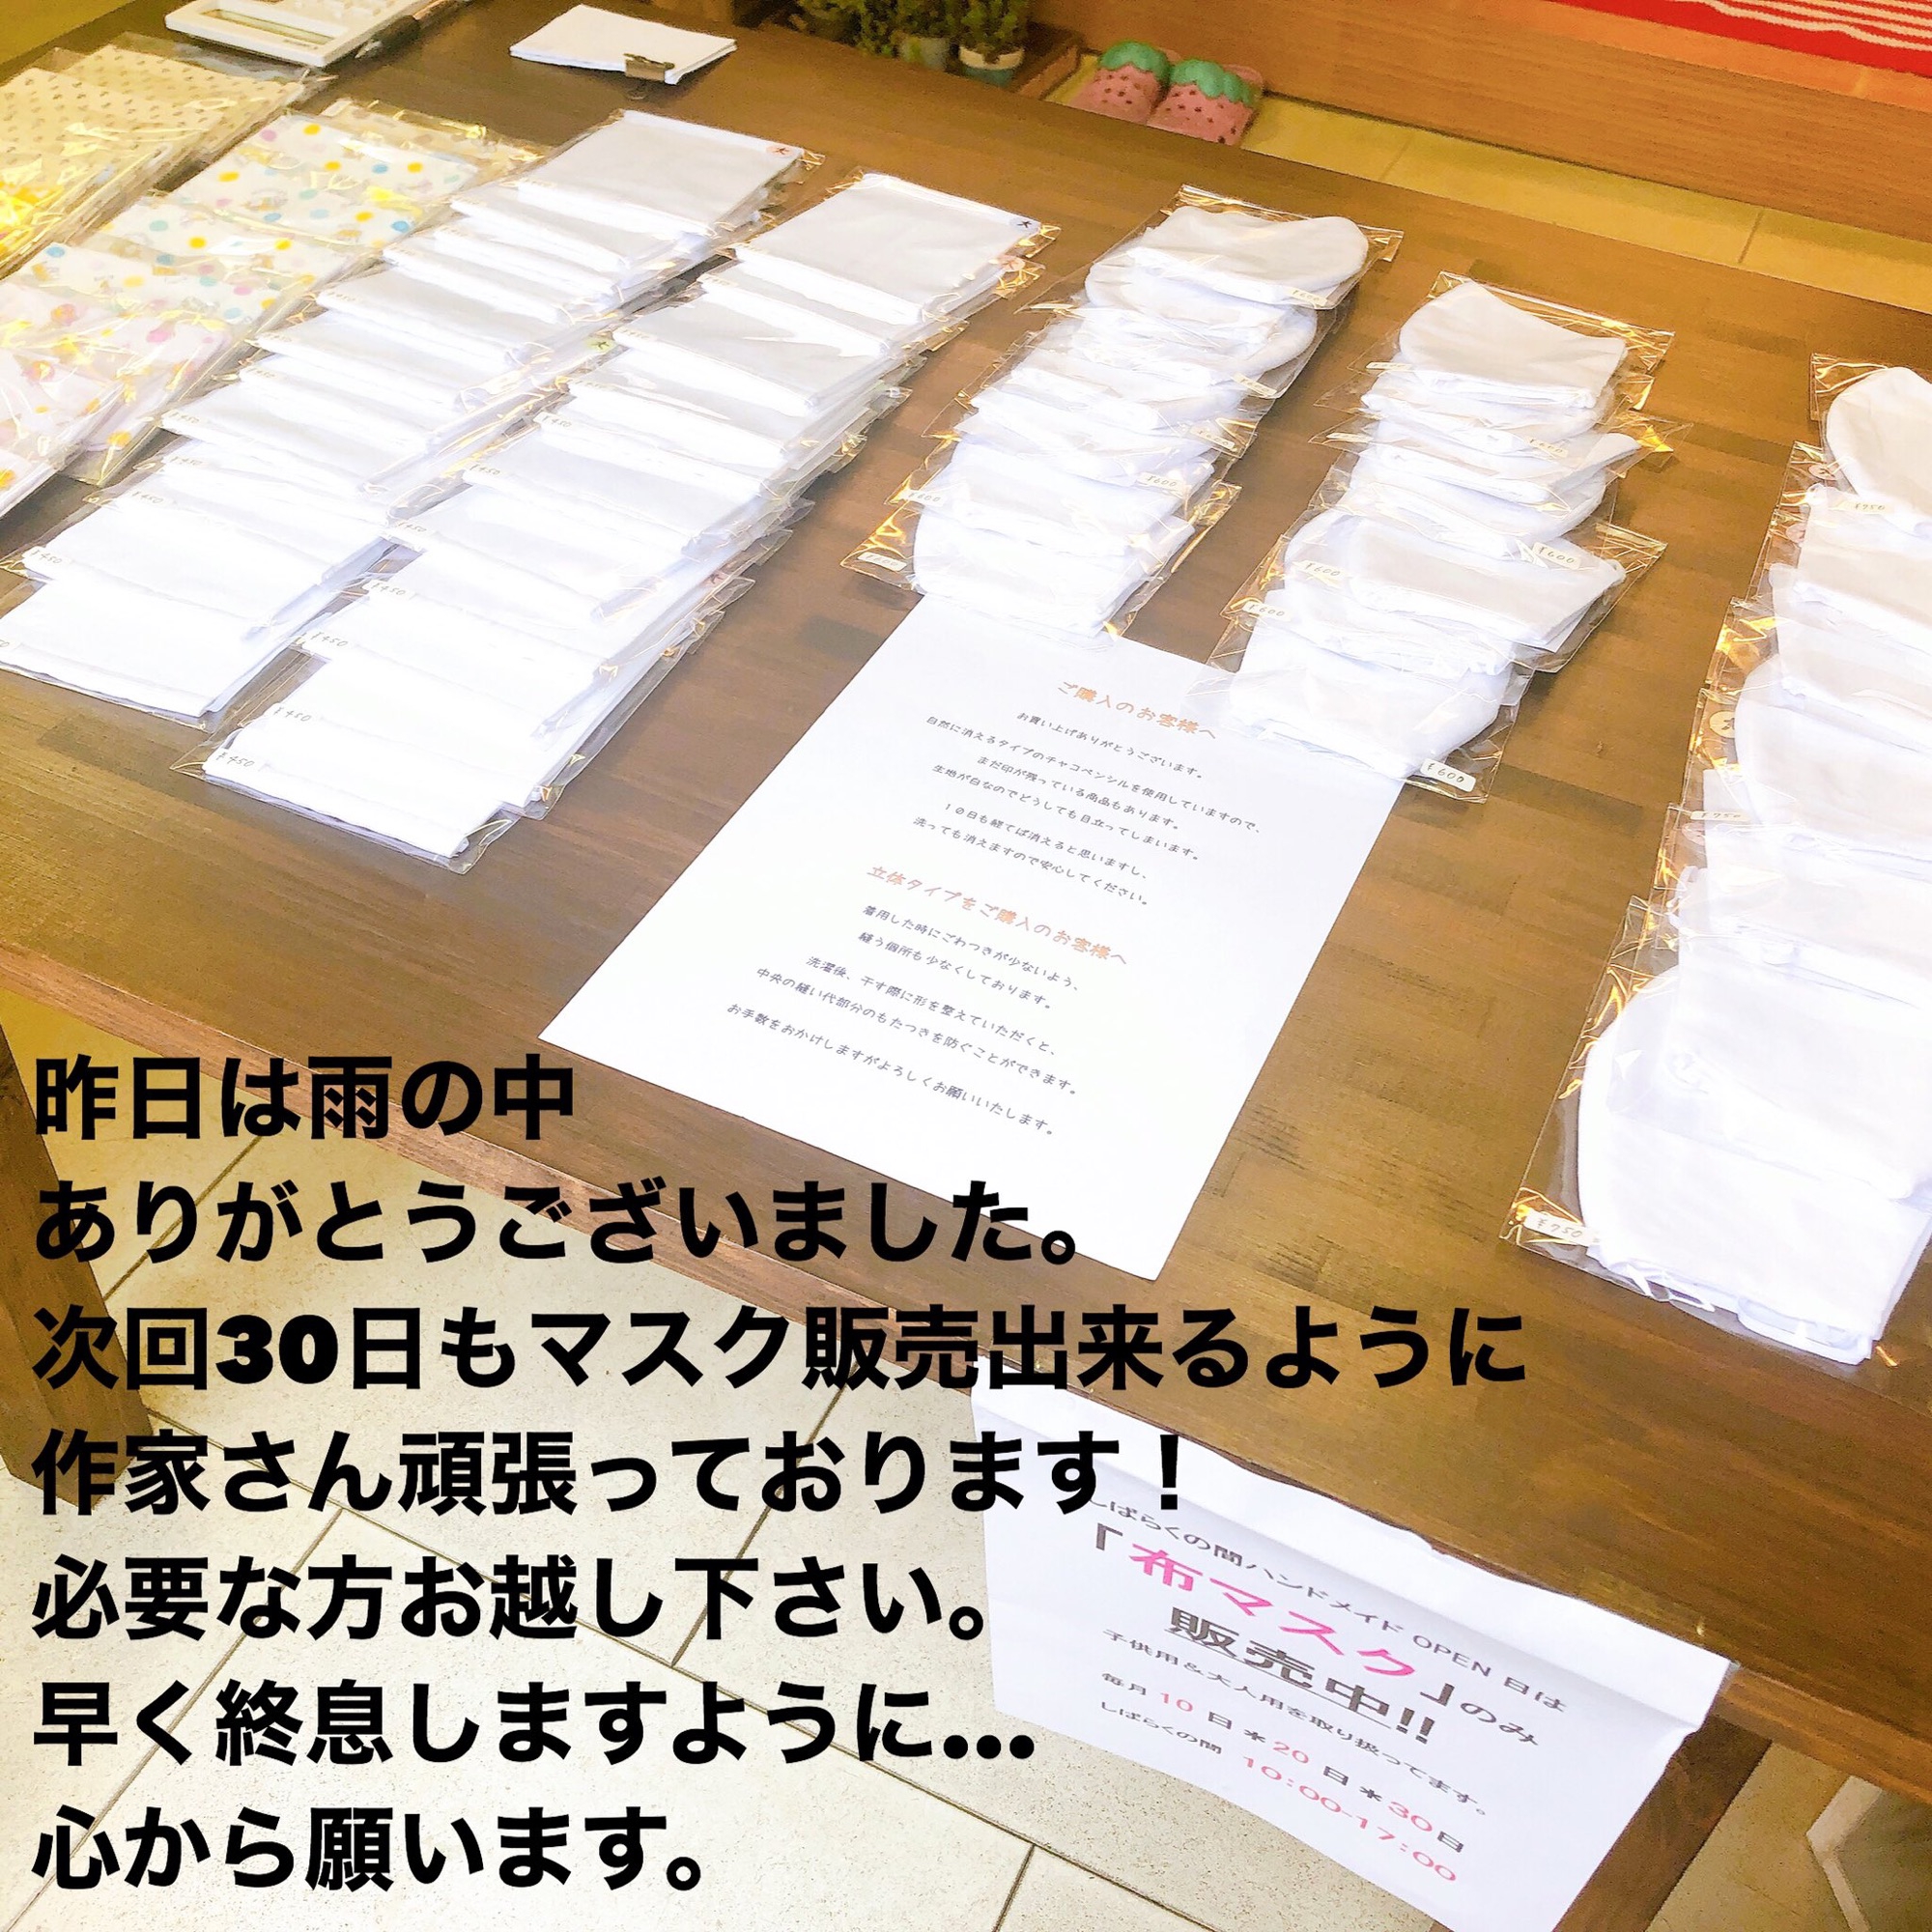 大
大
¥600
¥600
¥600
¥600
¥600
¥600
¥600
¥750
¥750
¥750
¥450
¥450
¥450
¥450
¥450
¥450
¥450
ご購入のお客様へ
お買い上げありがとうございます。
自然に消えるタイプのチャコペンシルを使用していますので、
まだ印が残っている商品もあります。
生地が白なのでどうしても目立ってしまいます。
10日も経てば消えると思いますし、
洗っても消えますので安心してください。
立体タイプをご購入のお客様へ
着用した時にごわつきが少ないよう、
縫う個所も少なくしております。
洗濯後、干す際に形を整えていただくと、
中央の縫い代部分のもたつきを防ぐことができます。
お手数をおかけしますがよろしくお願いいたします。
昨日は雨の中
ありがとうございました。
次回30日もマスク販売出来るように
作家さん頑張っております！
必要な方お越し下さい。
早く終息しますように...
心から願います。
しばらくの間ハンドメイド OPEN 日は
「布マスク」のみ
販売中!!
子供用＆大人用を取り扱ってます。
毎月 10 日 * 20 日 * 30 日
しばらくの間 10:00-17:00